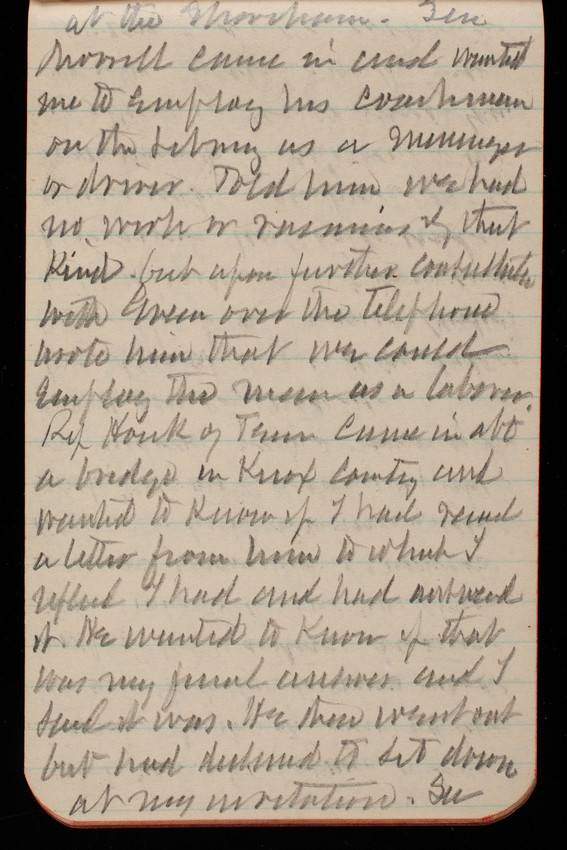 at the Shoreham. Sen
Morrill came in and wanted
me to Employ his Coachman
on the Library as a Messenger
or driver. Told him we had
no work or vacancies of that
Kind. but upon further consultation
with Green over the telephone
wrote him that we could
Employ the man as a laborer.
Rep Houk of Tenn came in abt
a bridge in Knox County and
wanted to Know if I had recd
a letter from him to which I
replied I had and had answered
it. He wanted to Know if that
was my final answer and I
said it was. He then went out
but had declined to sit down
at my invitation. Sen